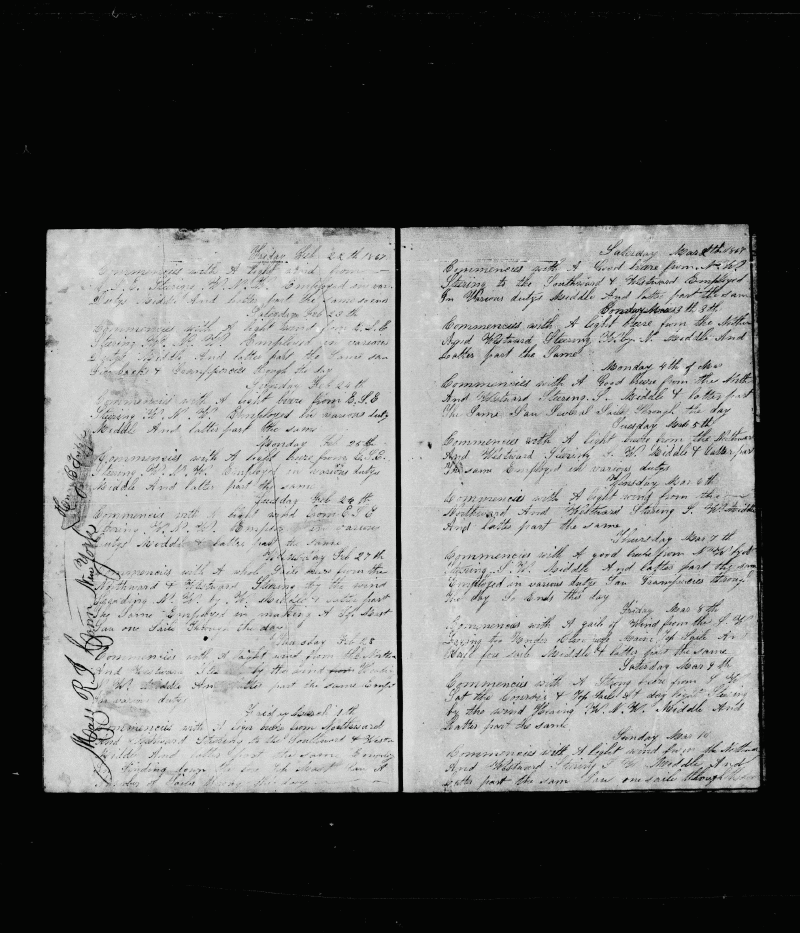 Friday Feb 22th 1867
Commencies with A light wind from
Employed in var
dutys Middle And latter part the same
Saturday Feb 23th
Commencies with A light wind from E.S.E
Steering W. N. W. Employed in various
Dutys Middle And latter part the Same saw
Finbacks & Grampuces through the day
Sunday Feb 24th
Commencies with A light breze from E.S.E
Stering W. N. W. Employed in various dutys
Middle And latter part the same
Monday Feb 25th
Commencies with A light breze from E.S.E.
Stering W. N. W. Employed in various dutys
Middle And latter part the same
Tuesday Feb 26th
Commencies with A light wind from E.S.E
Stering W. N. W. Employed in various
dutys Middle & latter part the same
Wensday Feb 27th
Commencies with A whole Sail breze from the
Northward & Westward Stering by the wind
heading N. W. by W. Middle & latter part
the Same Employed in making A Mast
Saw one Sail through the day
Thursday Feb 28
Commencies with A light wind from the North
And Westward by the wind
S. W. Middle And latter part the same
in various dutys
Friday March 1th
Commencies with A light breze from Northward
And Westward Stering to the Southward & West
Middle And latter part the same
down the Mast Saw A
this day
Mass R I
From New York
Saturday Mar 2th 1867
Commencies with A Good breze from N. W.
Stering to the Southward & Westward Employed
In Various dutys Middle And latter part the sam
Sunday Mar 3th
Commencies with A light breze from the North
And Westward Steering W. by N. Middle And
Latter part the Same
Monday 4th of Mar
Commencies with A Good breze from the North
And Westward Stering S. Middle & latter part
the Same Saw Several Sails through the day
Tuesday Mar 5th
Commencies with A light breze from the Northwar
And Westward Stering S. W. Middle & Latter part
The same Employed in various dutys
Wensday Mar 6th
Commencies with A light wind from the
Northward And Westward Stering S. W. Middle
And latter part the same
Thursday Mar 7th
Commencies with A good breze from N. W. by
Stering S. W. Middle And latter part the same
Employed in various dutys Saw Grampuces through
the day So Ends this day
Friday Mar 8th
Commencies with A gale of Wind from the S. W.
Laying to Under close reft Main Top Sail And
Middle & latter part the same
Saturday Mar 9th
Commencies with A Strong breze from S. W.
At day light Stering
by the wind Heading W. N. W. Middle And
Latter part the same
Sunday Mar 10
Commencies with A light wind from the Northwa
And Westward Stering S. W. Middle And
latter part the same Saw one sail through